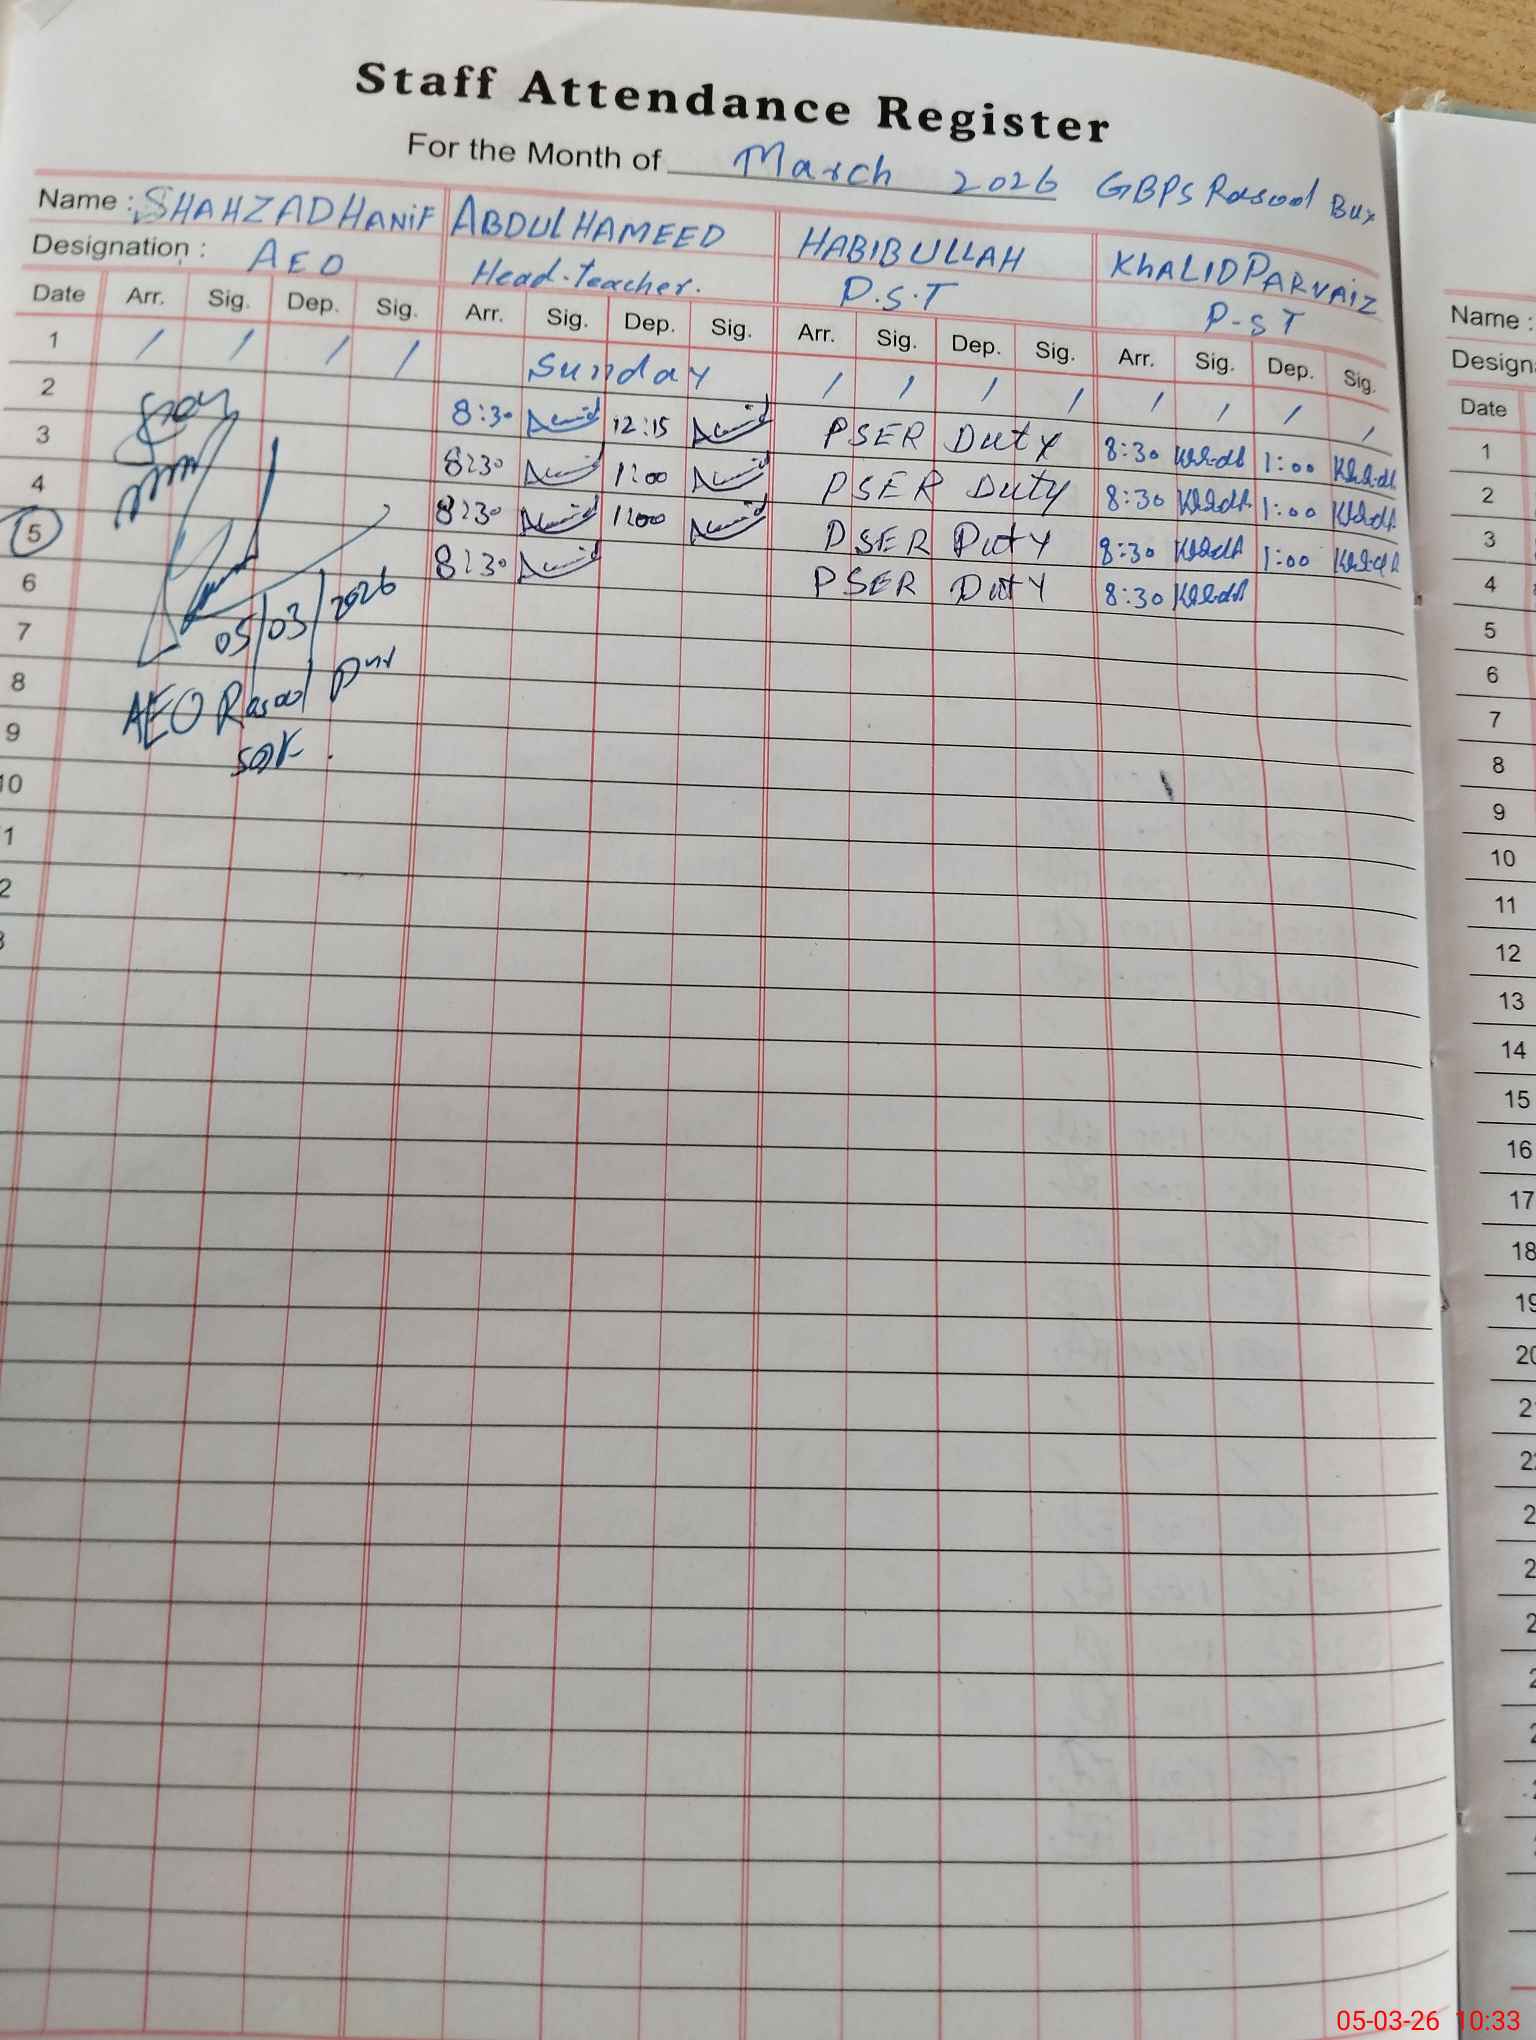 Staff Attendance Register
For the Month of March 2026 GBPS Rasool Bux
Name : SHAHZAD HANIF ABDUL HAMEED HABIBULLAH KHALID PARVAIZ
Designation : AEO Head-teacher. P.S.T P-ST
Date Arr. Sig. Dep. Sig. Arr. Sig. Dep. Sig. Arr. Sig. Dep. Sig. Arr. Sig. Dep. Sig.
1 / / / / Sunday / / / / / / / /
2 8:30 12:15 PSER Duty 8:30 1:00
3 8:30 1:00 PSER Duty 8:30 1:00
4 8:30 1:00 PSER Duty 8:30 1:00
5 8:30 PSER Duty 8:30
6
05/03/2026
7
8
AEO Rasool Pur
9
10
1
2
3
Name :
Design
Date
1
2
3
4
5
6
7
8
9
10
11
12
13
14
15
16
17
18
19
20
2
2
2
2
2
05-03-26 10:33